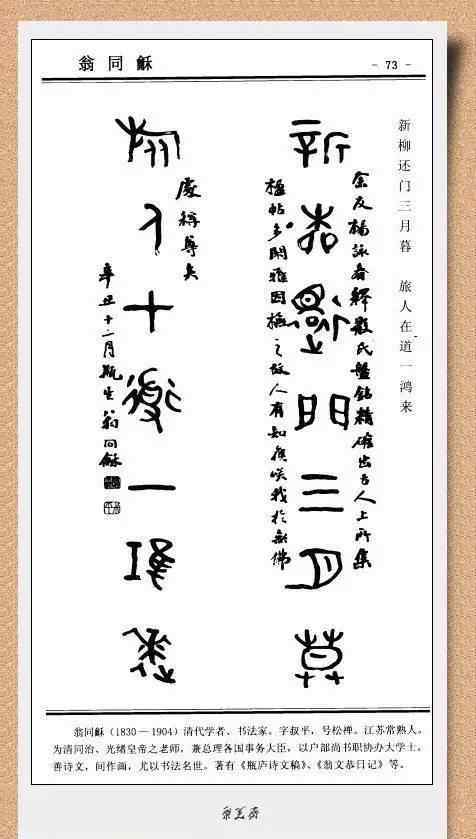 翁同龢
- 73 -
新柳还门三月暮 旅人在道一鸿来
新柳還門三月莫
余友楊詠春釋散氏盤銘精確出古人上所集
楹帖多閒雅因橅之故人有知應咲我於無佛
處稱尊矣
辛丑十二月瓶生翁同龢
翁同龢（1830－1904）清代学者、书法家。字叔平，号松禅。江苏常熟人。
为清同治、光绪皇帝之老师，兼总理各国事务大臣，以户部尚书职协办大学士。
善诗文，间作画，尤以书法名世。著有《瓶庐诗文稿》、《翁文恭日记》等。